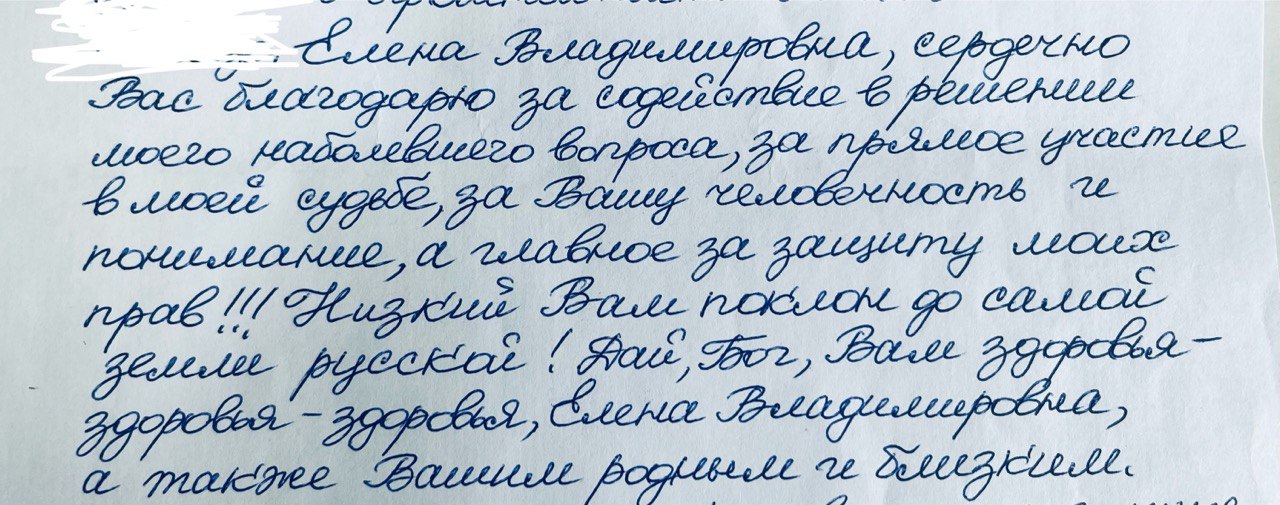 Елена Владимировна, сердечно
Вас благодарю за содействие в решении
моего наболевшего вопроса, за прямое участие
в моей судьбе, за Вашу человечность и
понимание, а главное за защиту моих
прав!!! Низкий Вам поклон до самой
земли русской! Дай, Бог, Вам здоровья-
здоровья-здоровья, Елена Владимировна,
а также Вашим родным и близким.